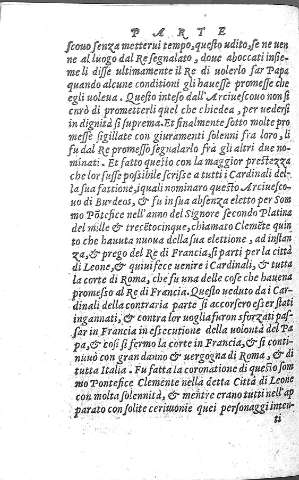 PARTE
scouo senza metterui tempo, questo udito, se ne uen
ne al luogo dal Re segnalato, doue aboccati insie-
me li disse ultimamente il Re di uolerlo far Papa
quando alcune conditioni gli hauesse promesse che
egli uoleua. Questo inteso dall'Arciuescouo non si
curò di promettergli quel che chiedea, per uedersi
in dignità si suprema. Et finalmente sotto molte pro
messe sigillate con giuramenti solenni fra loro, li
fu dal Re promesso segnalarlo fra gli altri due no-
minati. Et fatto questo con la maggior prestezza
che lor fusse possibile scrisse a tutti i Cardinali del-
la sua fattione, iquali nominaro questo Arciuesco-
uo di Burdeos, & fu in sua absenza eletto per Som
mo Pōtefice nell'anno del Signore secondo Platina
del mille & trecētocinque, chiamato Clemēte quin
to che hauuta nuoua della sua elettione, ad instan
za, & prego del Re di Francia, si partì per la città
di Leone, & quiui fece uenire i Cardinali, & tutta
la corte di Roma, che fu una delle cose che hauea
promesso al Re di Francia. Questo ueduto da i Car-
dinali della contraria parte si accorsero esser stati
ingannati, & contra lor uoglia furon sforzati pas-
sar in Francia in essecutione della uolontà del Pa
pa, & così si fermò la corte in Francia, & si conti-
nuuò con gran danno & uergogna di Roma, & di
tutta Italia. Fu fatta la coronatione di questo som
mo Pontefice Clemente nella detta Città di Leone
con molta solennità, & mentre erano tutti nell'ap
parato con solite cerimonie quei personaggi inten-
ti